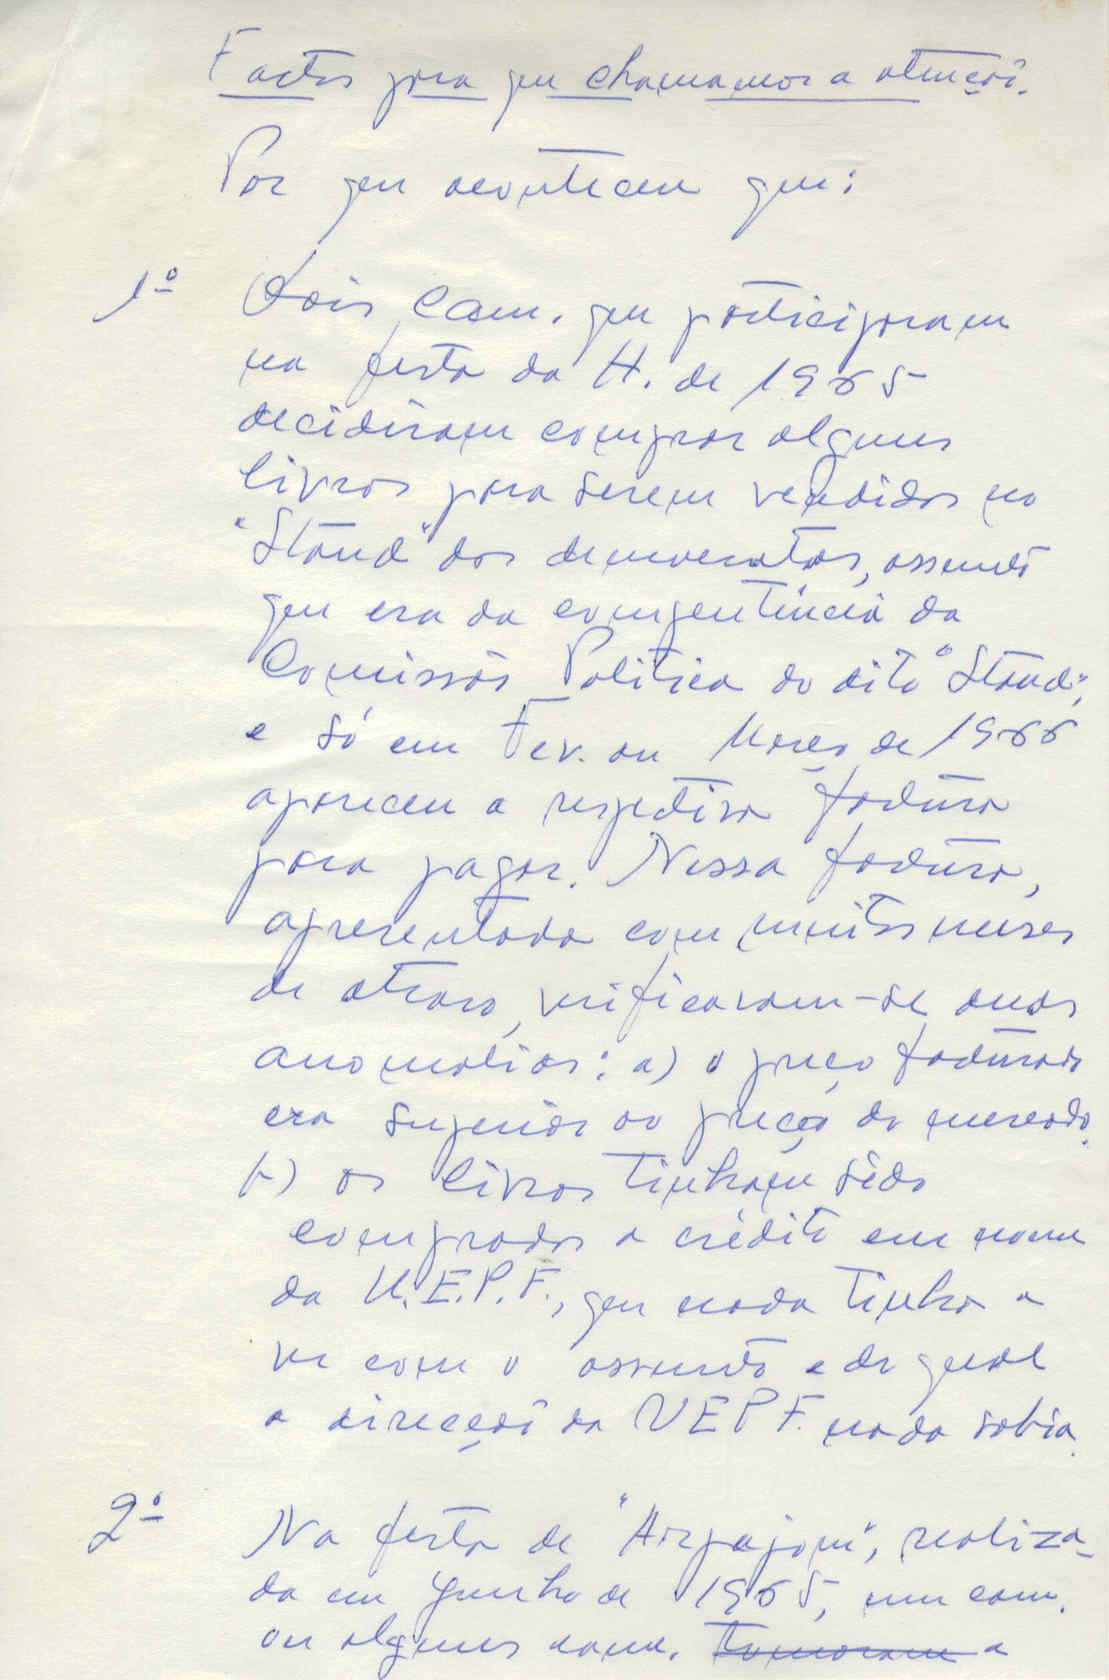 Factos para que chamamos a atenção.
Por que aconteceu que:
1º Dois Cam. que participaram
na festa da H. de 1965
decidiram comprar alguns
livros para serem vendidos no
"Stand" dos democratas, assunto
que era da competência da
Comissão Politica do dito "Stand",
e só em Fev. ou Março de 1966
apareceu a respectiva factura
para pagar. Nessa factura,
apresentada com muitos meses
de atraso, verificaram-se duas
anomalias: a) o preço facturado
era superior ao preço do mercado.
b) os livros tinham sido
comprados a crédito em nome
da U.E.P.F., que nada tinha a
ver com o assunto e do qual
a direcção da UEPF. nada sabia.
2º Na festa de "Arpajom", realiza-
da em Junho de 1965, um cam.
ou alguns cama. tomaram a